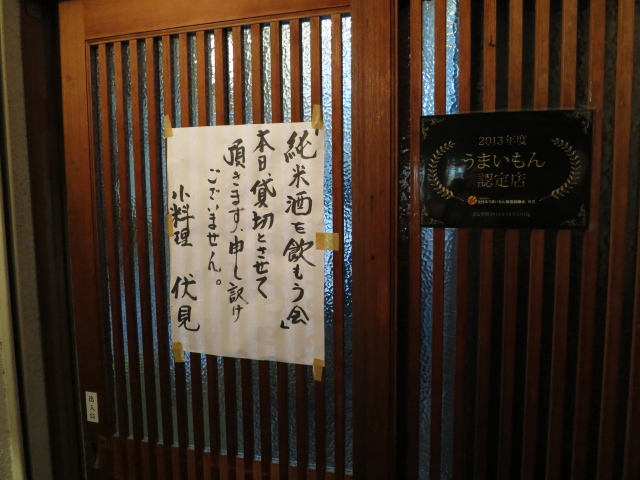 純米酒を飲もう会」
本日、貸切とさせて
頂きます、申し訳け
ございません。
小料理 伏見
2013年度
うまいもん
認定店
出入口